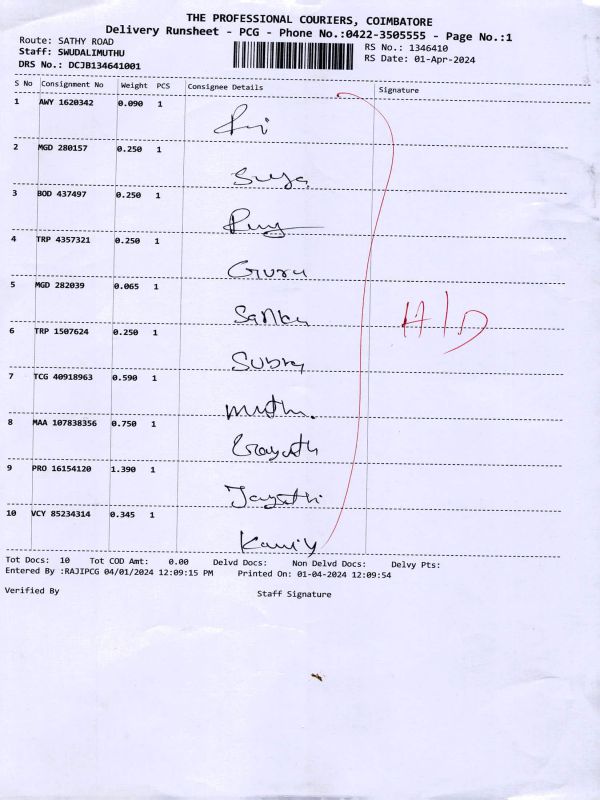 THE PROFESSIONAL COURIERS, COIMBATORE
Delivery Runsheet - PCG - Phone No.:0422-3505555 - Page No.:1
Route: SATHY ROAD
Staff: SWUDALIMUTHU
DRS No.: DCJB134641001
RS No.: 1346410
RS Date: 01-Apr-2024
S No Consignment No Weight PCS Consignee Details Signature
1 AWY 1620342 0.090 1
2 MGD 280157 0.250 1
Surya
3 BOD 437497 0.250 1
4 TRP 4357321 0.250 1
Guru
5 MGD 282039 0.065 1
A/D
6 TRP 1507624 0.250 1
7 TCG 40918963 0.590 1
Muthu.
8 MAA 107838356 0.750 1
9 PRO 16154120 1.390 1
10 VCY 85234314 0.345 1
Tot Docs: 10 Tot COD Amt: 0.00 Delvd Docs: Non Delvd Docs: Delvy Pts:
Entered By :RAJIPCG 04/01/2024 12:09:15 PM Printed On: 01-04-2024 12:09:54
Verified By Staff Signature